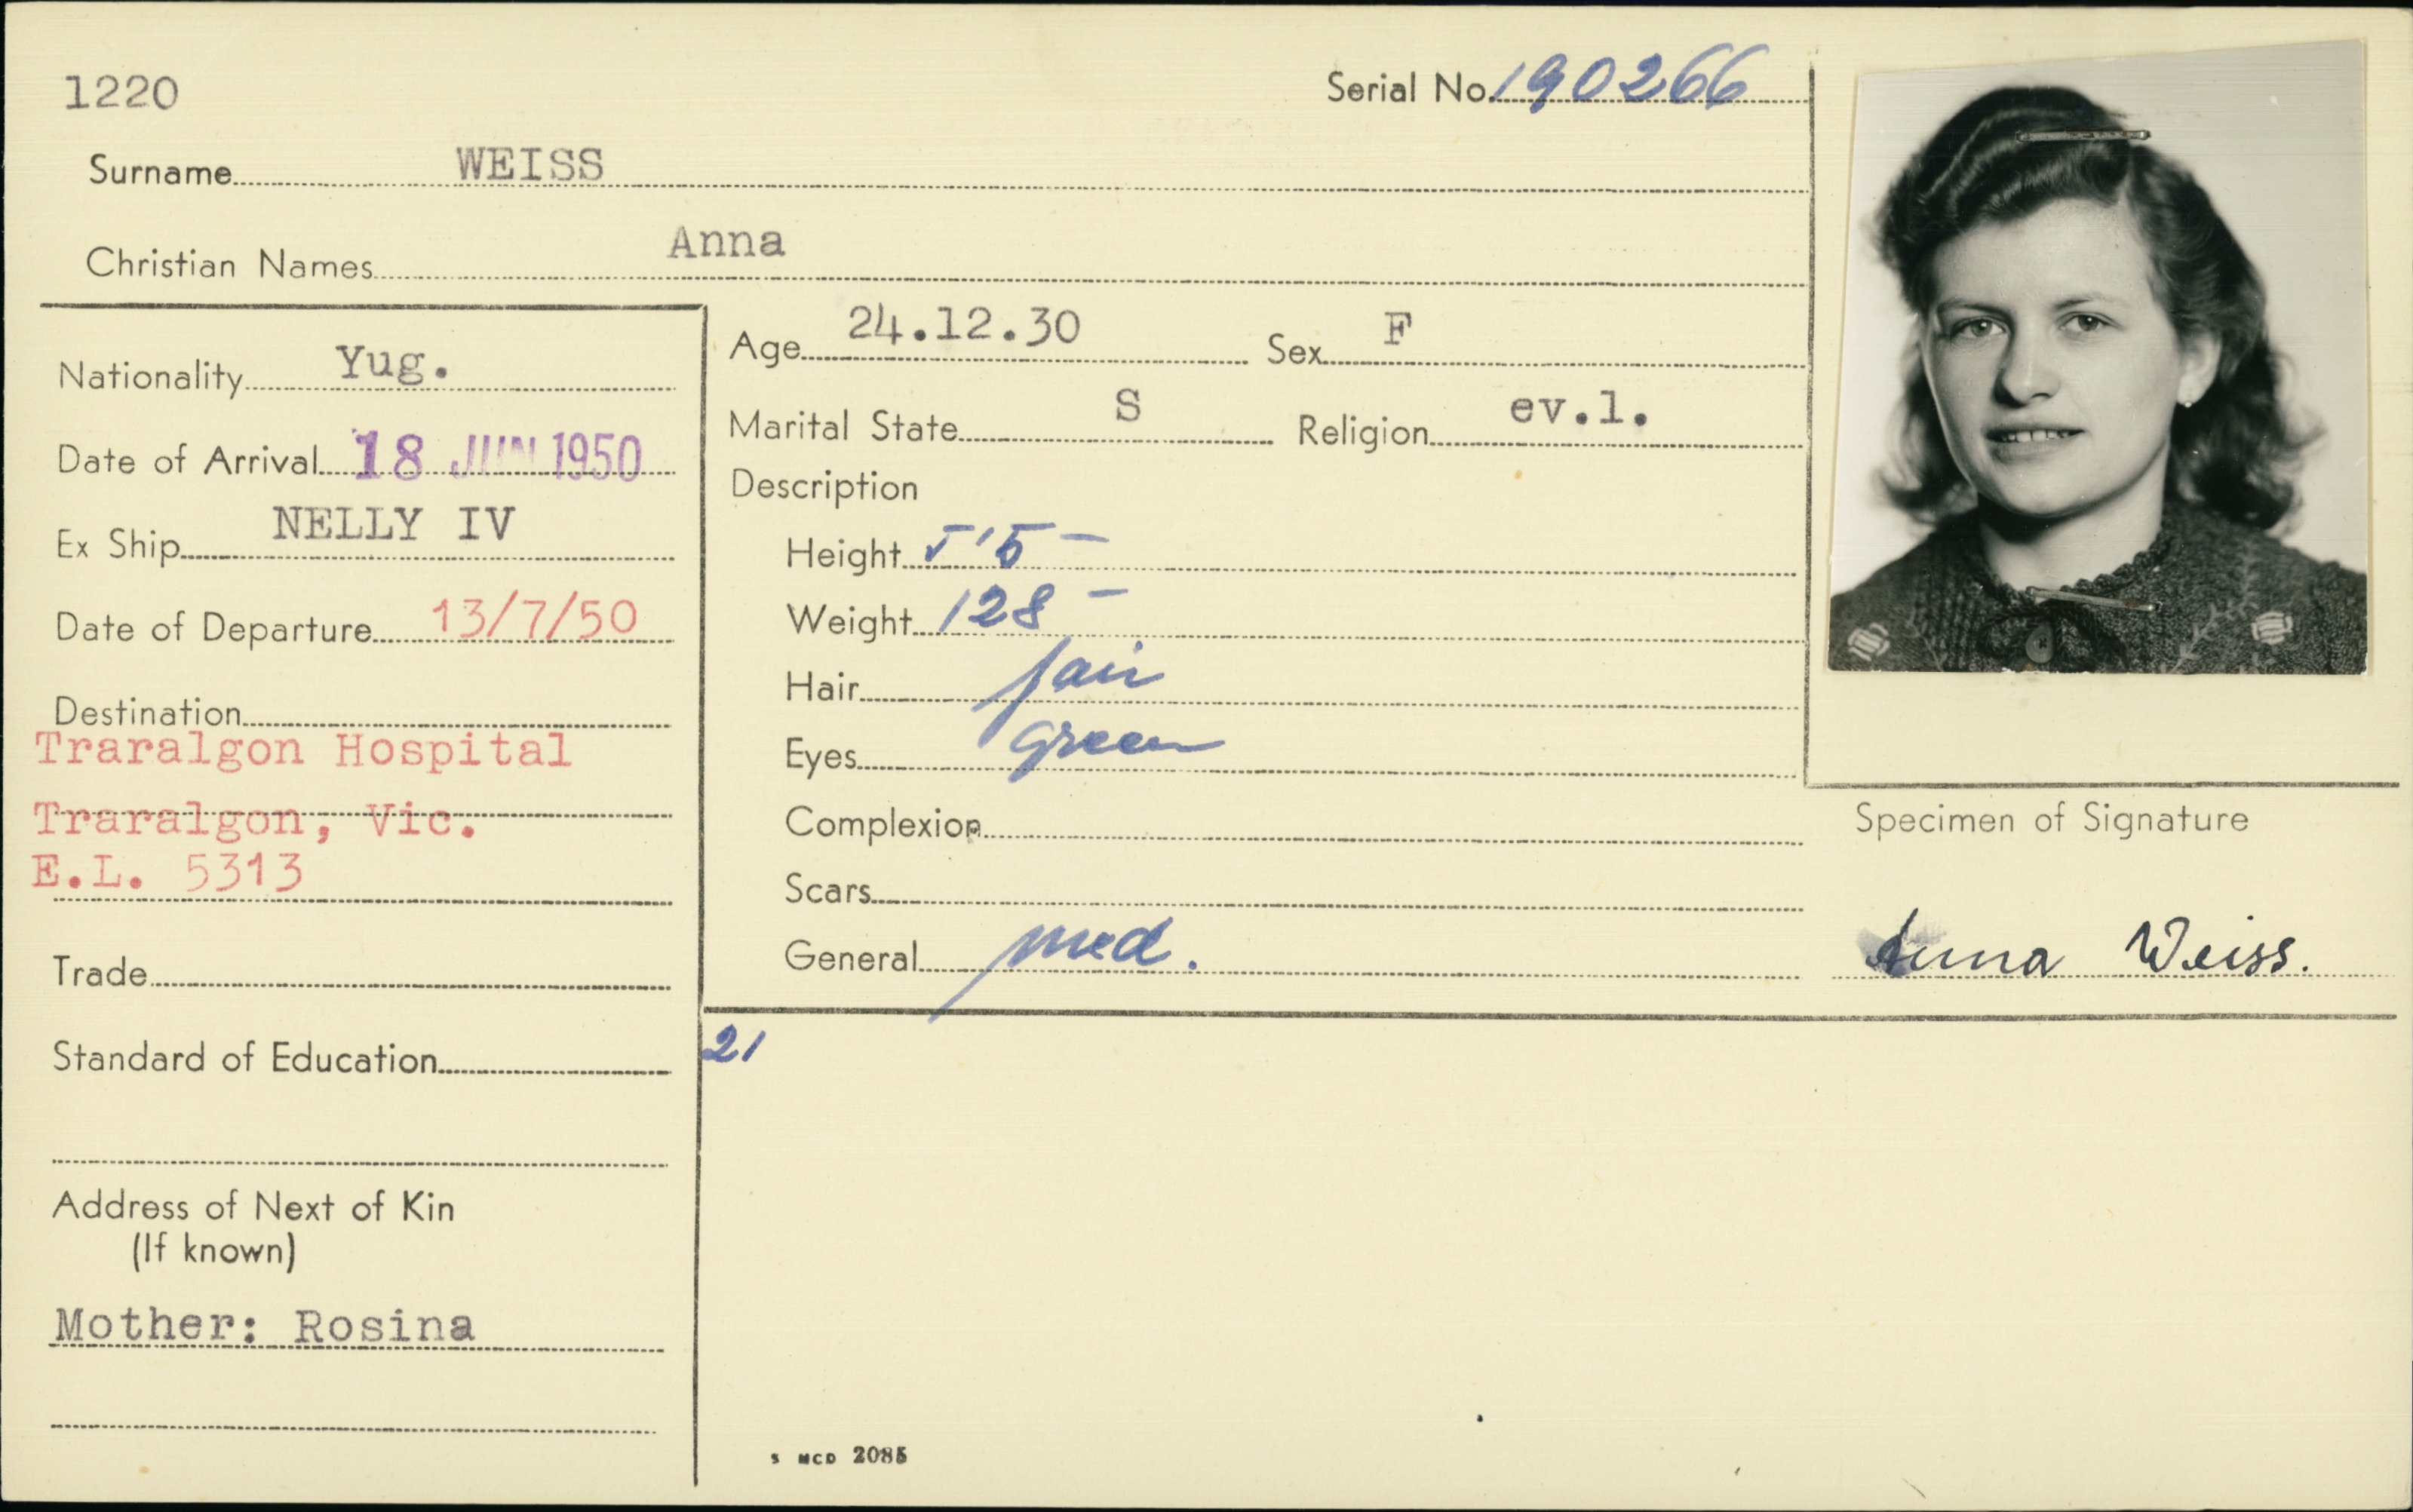 1220
Serial No. 190266
Surname WEISS
Christian Names Anna
Nationality Yug.
Date of Arrival 18 JUN 1950
Ex Ship NELLY IV
Date of Departure 13/7/50
Destination
Traralgon Hospital
Traralgon, Vic.
E.L. 5313
Trade
Standard of Education
Address of Next of Kin
(If known)
Mother: Rosina
Age 24.12.30 Sex F
Marital State S Religion ev.l.
Description
Height 5'5 -
Weight 128 -
Hair fair
Eyes green
Complexion
Scars
General med.
21
Specimen of Signature
Anna Weiss.
S MCD